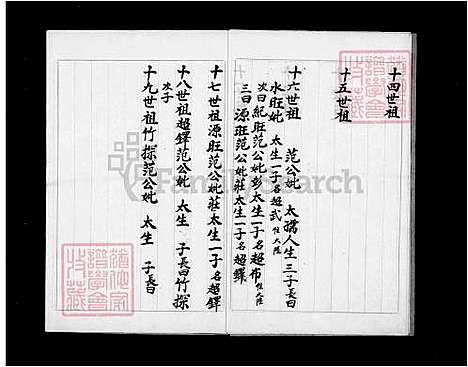 十四世祖
十五世祖
十六世祖 范公妣 太孺人生三子長曰
水旺妣 太生一子名超武 住大陸
次曰紀旺范公妣彭太生一子名超布 住大陸
三曰源旺范公妣莊太生一子名超鐸
十七世祖源旺范公妣莊太生一子名超鐸
十八世祖超鐸范公妣 太生 子長曰竹探
次子
十九世祖竹探范公妣 太生 子長曰
FamilySearch